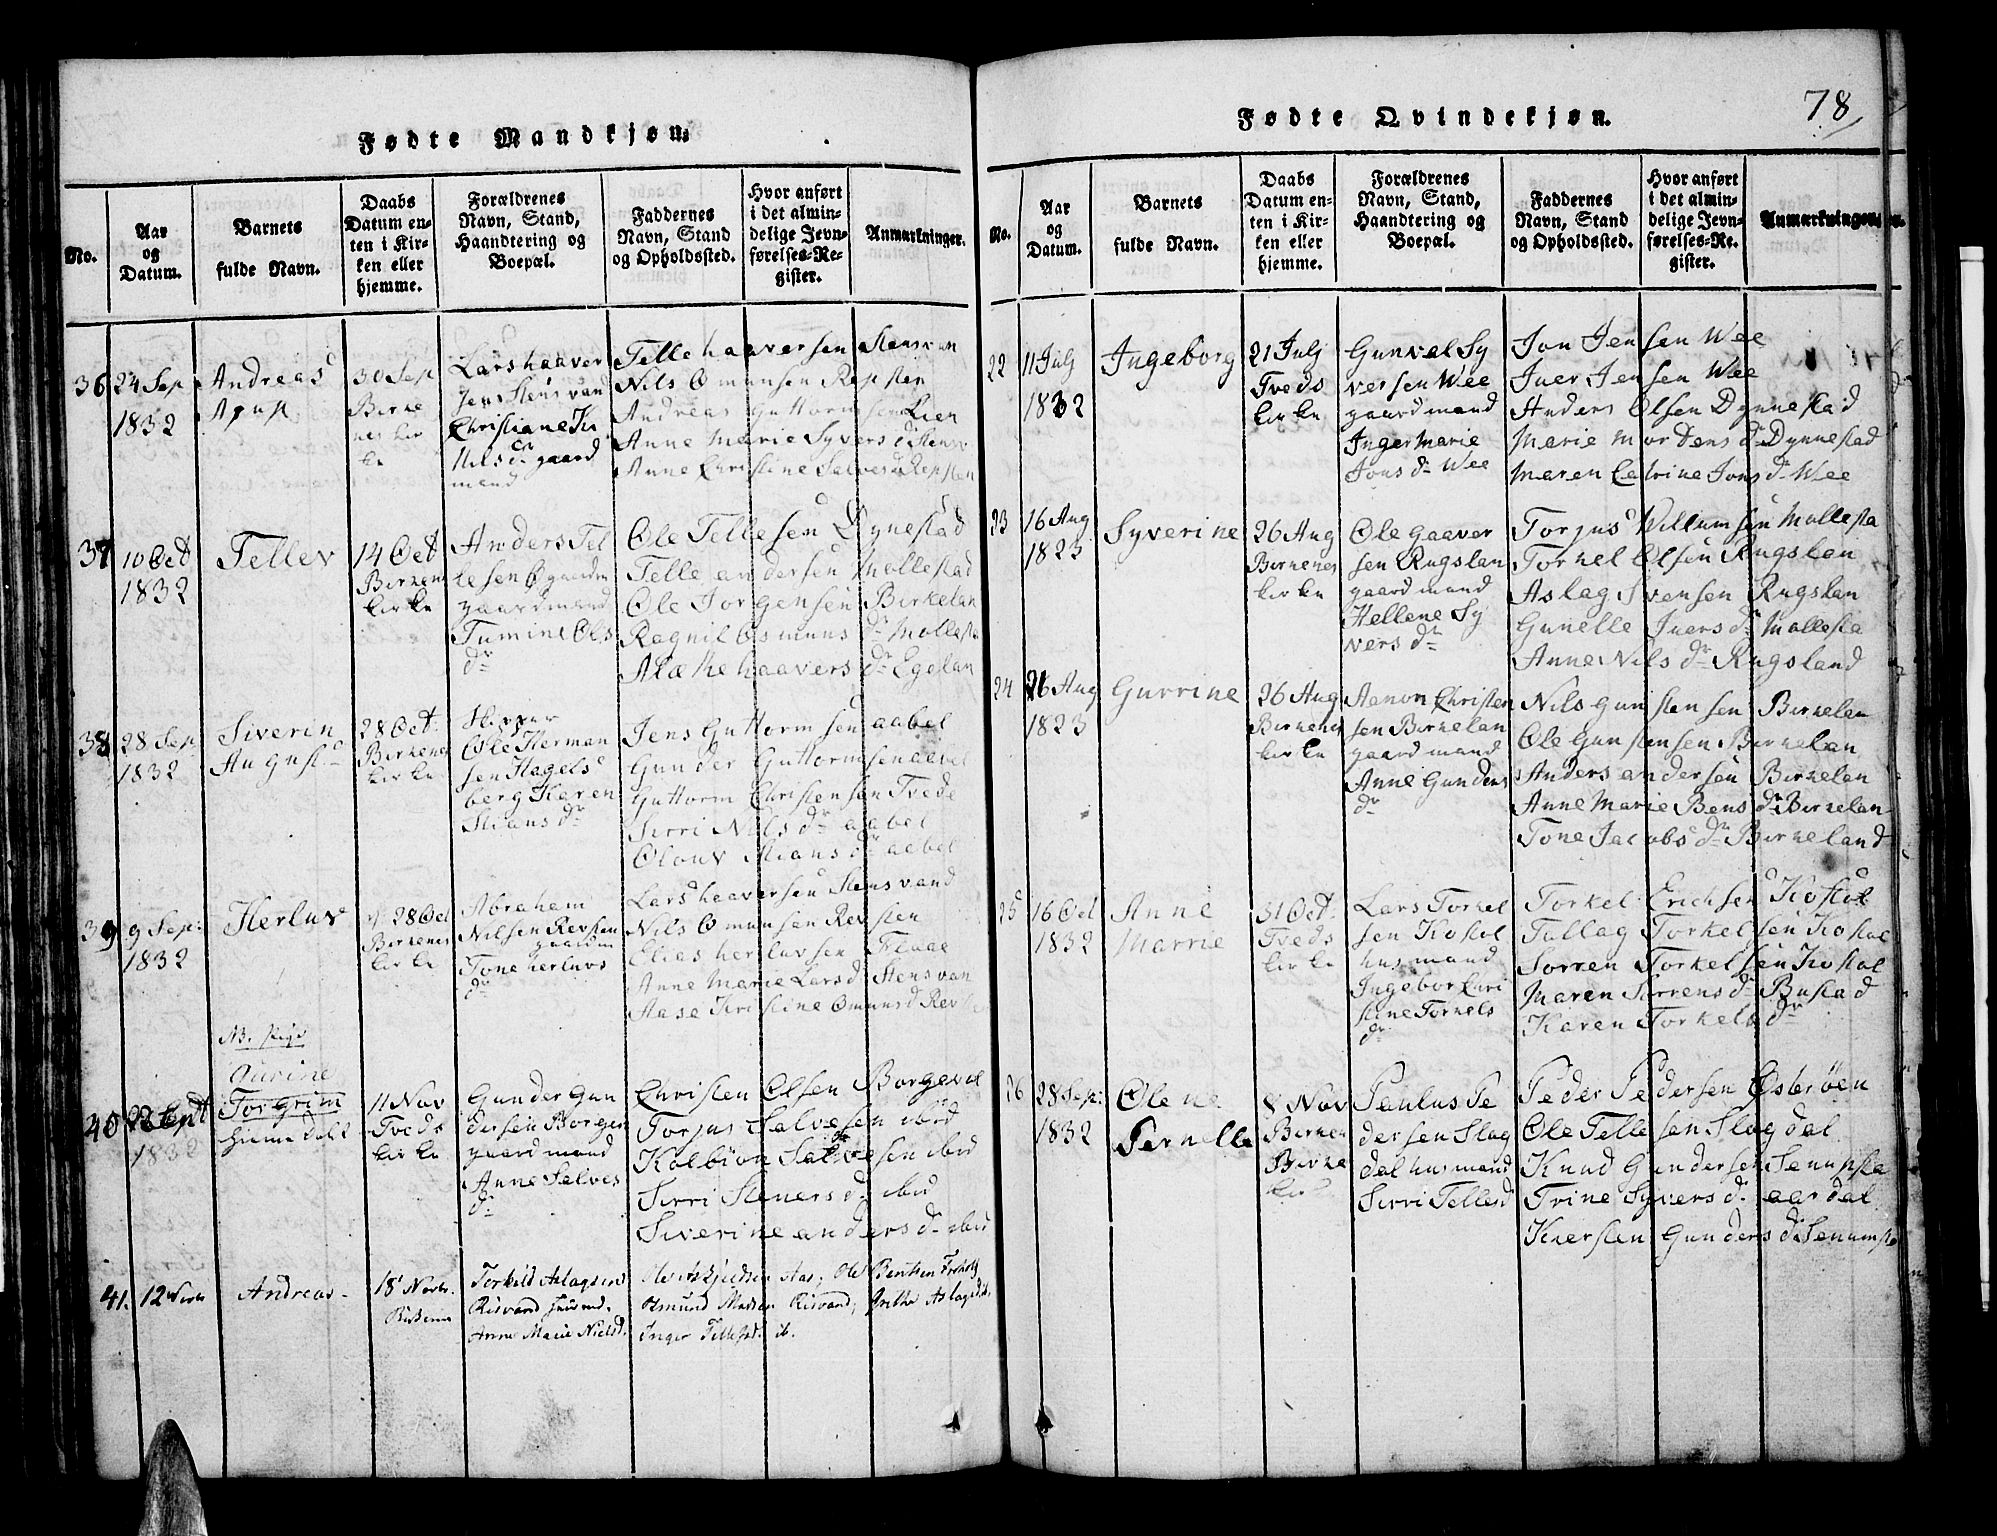 Fødte Mandkjøn.
No.
Aar
og
Datum.
Barnets
fulde Navn.
Daabs
Datum en-
ten i Kir-
ken eller
hjemme.
Forældrenes
Navn, Stand,
Haandtering og
Boepæl.
Faddernes
Navn, Stand
og Opholdssted.
Hvor anført
i det almin-
delige Jevn-
førelses-Re-
gister.
Anmærkninger.
36
24 Sep
1832
Andreas
30 Sep
Birke
nes kir
ke
Lars haaver
sen Stensvan
Christiane
Nils dr gaard
mand
Telle haaversen Stensvan
Nils Omunsen Repsten
Andreas Guttormsen Lien
Anne Marie Syvers d Stensv
Anne Christine Salves d Repsten
37
10 Oct
1832
Tellev
14 Oct
Birken
kirke
Anders Tel
lesen
gaardmand
Tumine Ols
dr
Ole Tellesen Dynestad
Telle andersen Mollestad
Ole Jorgensen Birkelan
Ragnil Osmuns dr Mollesta
haavers dr Egelan
38
28 Sep
1832
Siverin
August
28 Oct.
Birkenes
kirke
Ole Herman
sen Hagels
berg Karen
Stians dr
Jens Guttormsen aabel
Gunder Guttormsen aabel
Guttorm Christensen Tvede
Sirri Nils dr aabel
Olouv Stians dr aabel
39
9 Sep:
1832
Herluv
28 Oct
Birkenes
kirke
Abraham
Nilsen Revsten
gaardm
Tone herluvs
dr
Lars haaversen Stensvand
Nils Omunsen Revsten
Elias herluvsen Flaae
Anne Marie Lars d Stensvan
Aase Kirstine Omuns d Revst
NB. pige
Gurine
40
22 Sept
1832
Torgrim
hiemedøbt
11 Nov
Tveds
kirke
Gunder Gun
dersen Borge
gaardmand
Anne Salves
dr
Christen Olsen Borgevel
Torjus Salvesen ibid
Kolbion Salvesen ibid
Sirri Steners d. ibid
Siverine anders d. ibid
41.
12
Andreas
18 Novbr.
Torkild Aslagsen
Risvand
Anne Marie Nielsd.
Ole Askjeldsen Aas; Ole Bentsen
Osmund Madsen Risvand; Aslagsdtr.
Inger Tellefsd. ib.
78
Fødte Qvindekjøn.
No.
Aar
og
Datum.
Barnets
fulde Navn.
Daabs
Datum en-
ten i Kir-
ken eller
hjemme.
Forældrenes
Navn, Stand,
Haandtering og
Boepæl.
Faddernes
Navn, Stand
og Opholdssted.
Hvor anført
i det almin-
delige Jevn-
førelses-Re-
gister.
Anmærkninger.
22
11 July
1832
Ingeborg
21 July
Tveds
kirke
Gunvel Sy
versen Wee
gaardmand
Inger Marie
Jons dr Wee
Jon Jensen Wee
Iver Jensen Wee
Anders Olsen Dynnestad
Marie Mortens dr Dynnestad
Maren Catrine Jons dr Wee
23
16 Aug
1823
Syverine
26 Aug
Birkenes
kirke
Ole Gaaver
sen Rugslan
gaardmand
Hellene Sy
vers dr
Torjus Villumsen Mollesta
Torkel Olsen Rugslan
Aslag Svensen Rugslan
Gunelle Ivers dr Mollesta
Anne Nils dr Rugsland
24
26 Aug
1823
Gurrine
26 Aug
Birkenes
kirke
Aanon Christen
sen Birkelan
gaardmand
Anne Gunders
dr
Nils Gunstensen Birkelan
Ole Gunstensen Birkelan
Anders andersen Birkelan
Anne Marie Bens dr Birkelan
Tone Jacobs dr Birkeland
25
16 Oct
1832
Anne
Marrie
31 Oct.
Tveds
kirke
Lars Torkel
sen Kostol
husmand
Ingebor Chri
stine Torkels
dr
Torkel Erichsen Kostol
Tallag Torkelsen Kostol
Sorren Torkelsen Kostol
Maren Sorrens dr Bustad
Karen Torkels dr
26
28 Sep:
1832
Olene
Pernelle
8 Nov
Birken
Paulus Pe
dersen Slag
dal husmand
Sirri Telles d
Peder Pedersen Osterøen
Ole Tellesen Slagdal
Knud Gundersen Senumsta
Trine Syvers d. aardal
Kiersten Gunders d. Senumsta